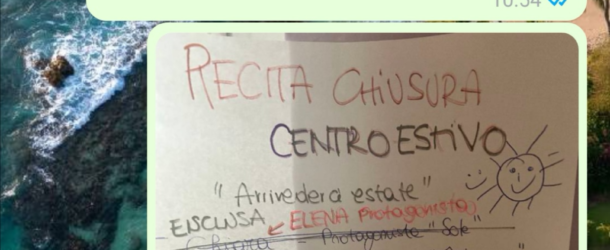 10:54
RECITA CHIUSURA
CENTRO ESTIVO
"Arrivederci estate"
ENSCLUSA ELENA Protagonista
Protagonista "Sole"